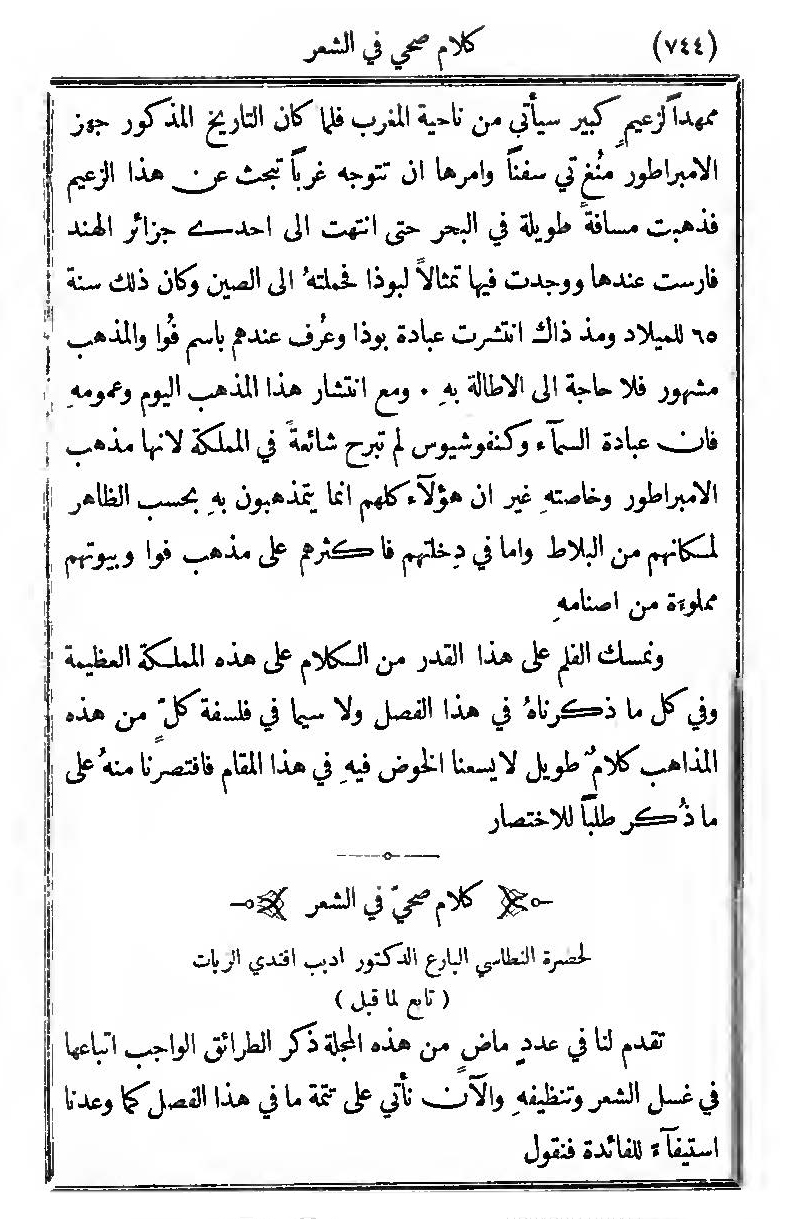 (٧٤٤) كلام صحي في الشعر
ممهداً لزعيمٍ كبير سيأتي من ناحية المغرب فلما كان التاريخ المذكور جهز
الامبراطور مُنغ تي سفناً وامرها ان تتوجه غرباً تبحث عن هذا الزعيم
فذهبت مسافةً طويلة في البحر حتى انتهت الى احدى جزائر الهند
فارست عندها ووجدت فيها تمثالاً لبوذا فحملتهُ الى الصين وكان ذلك سنة
٦٥ للميلاد ومذ ذاك انتشرت عبادة بوذا وعُرف عندهم باسم فُوا والمذهب
مشهور فلا حاجة الى الاطالة بهِ ٠ ومع انتشار هذا المذهب اليوم وعمومهِ
فان عبادة السمآء وكنفوشيوس لم تبرح شائعةً في المملكة لانها مذهب
الامبراطور وخاصتهِ غير ان هؤلآء كلهم انما يتمذهبون بهِ بحسب الظاهر
لمكانهم من البلاط واما في دِخلتهم فاكثرهم على مذهب فوا وبيوتهم
مملوءة من اصنامهِ
ونمسك القلم على هذا القدر من الكلام على هذه المملكة العظيمة
وفي كل ما ذكرناهُ في هذا الفصل ولا سيما في فلسفة كلٍّ من هذه
المذاهب كلامٌ طويل لا يسعنا الخوض فيهِ في هذا المقام فاقتصرنا منهُ على
ما ذُكر طلباً للاختصار
كلام صحيّ في الشعر
لحضرة النطاسي البارع الدكتور اديب افندي الزيات
( تابع لما قبل )
تقدم لنا في عددٍ ماضٍ من هذه المجلة ذكر الطرائق الواجب اتباعها
في غسل الشعر وتنظيفهِ والآن نأتي على تتمة ما في هذا الفصل كما وعدنا
استيفآءً للفائدة فنقول